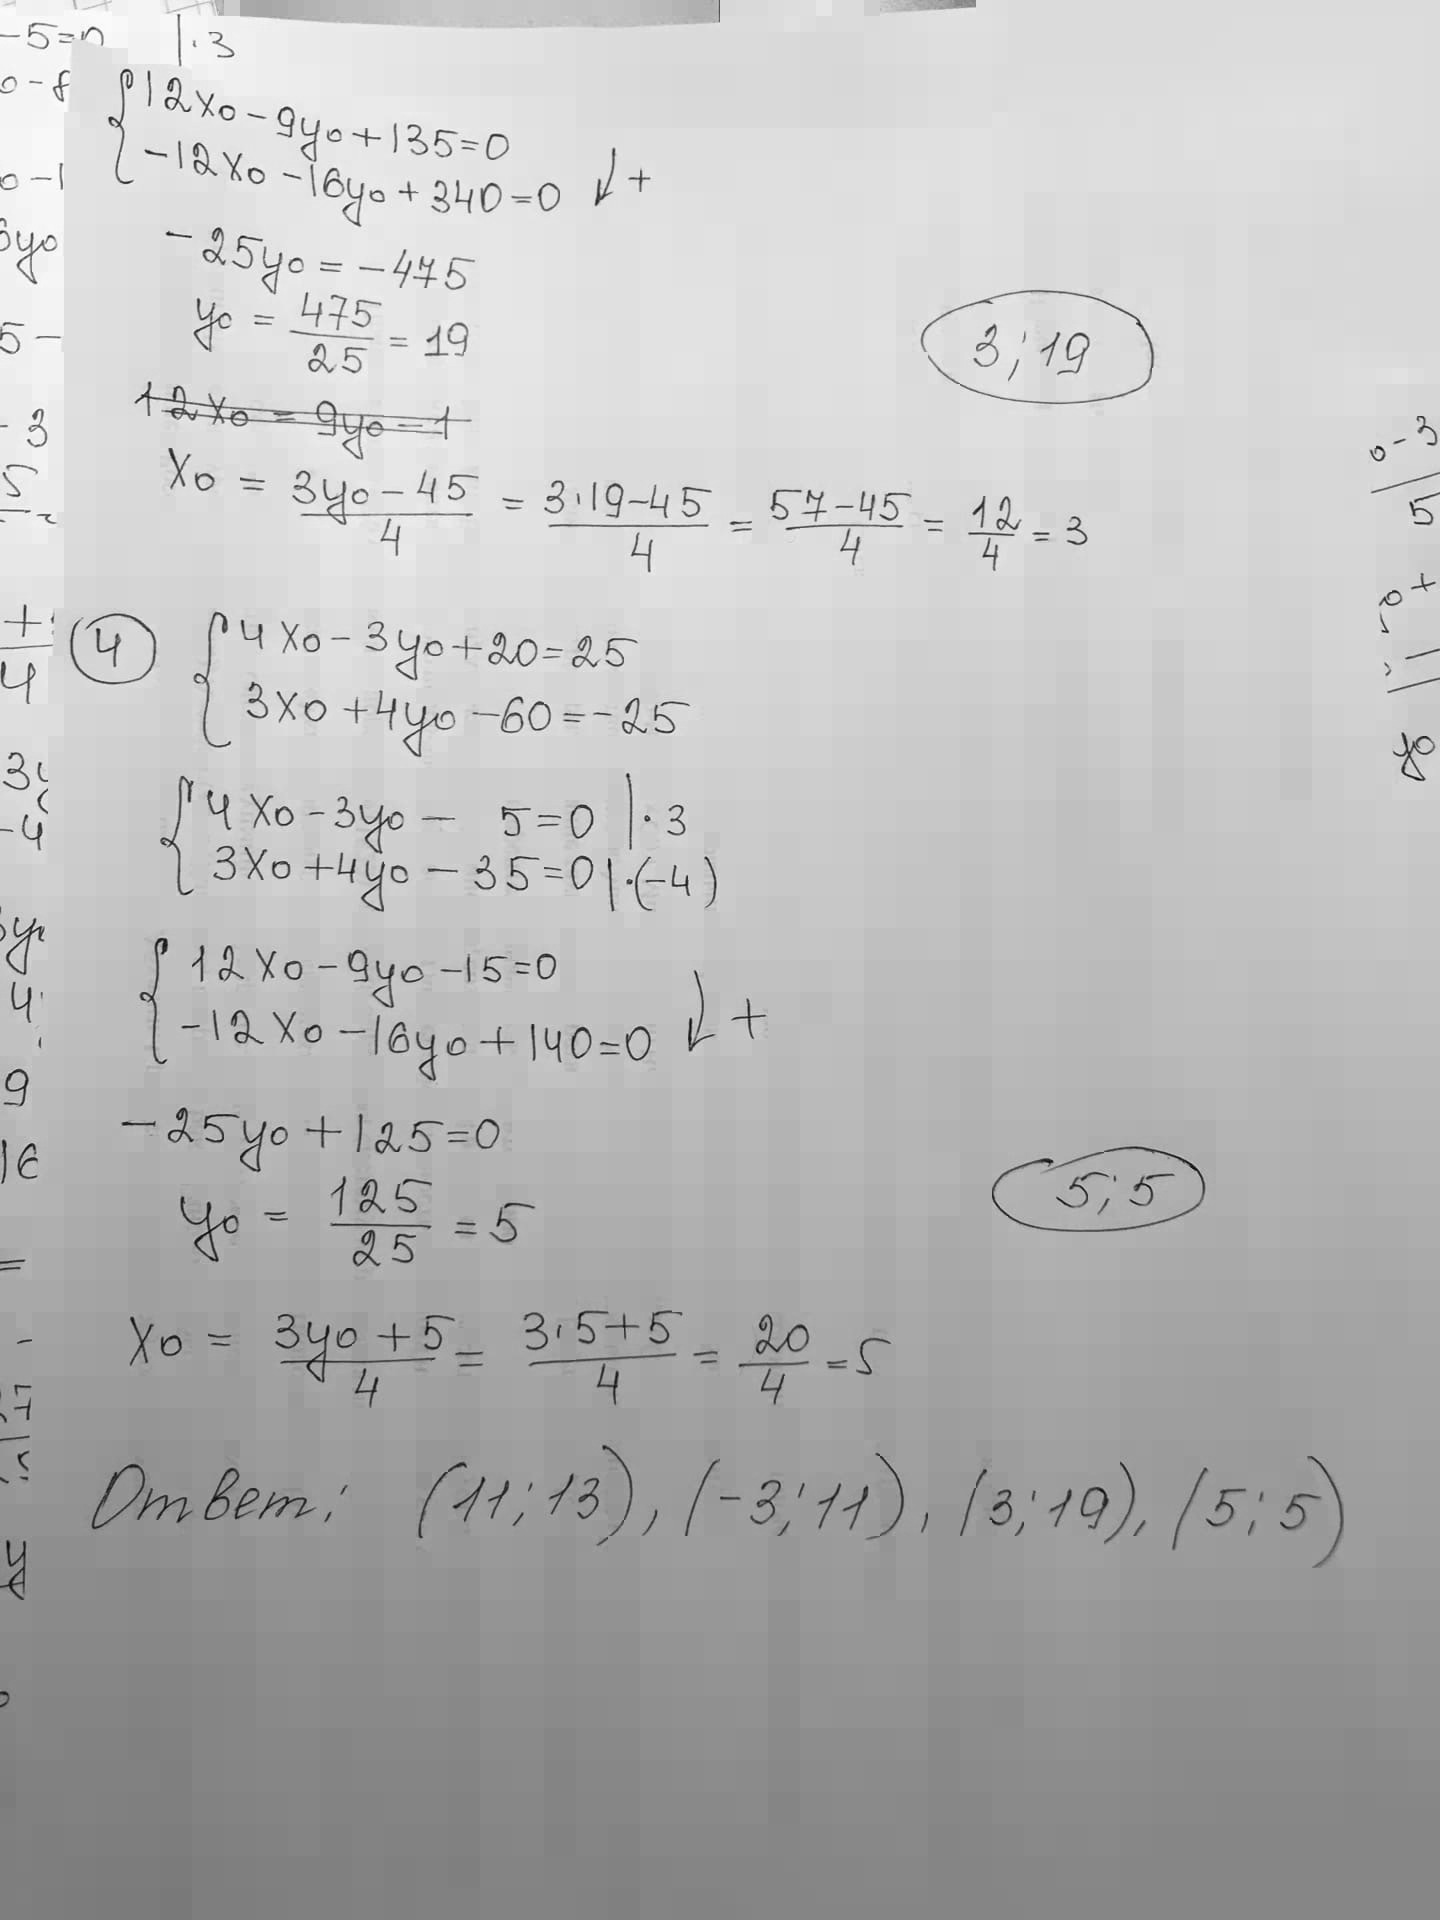 -5=0 |·3
0-8
{12x0-9y0+135=0
-12x0-16y0+340=0 ↓+
-25y0=-475
y0 = 475/25 = 19
3;19
12x0 = 9y0-1
x0 = (3y0-45)/4 = (3·19-45)/4 = (57-45)/4 = 12/4 = 3
④ {4x0-3y0+20=25
3x0+4y0-60=-25
{4x0-3y0- 5=0 |·3
3x0+4y0-35=0 |·(-4)
{12x0-9y0-15=0
-12x0-16y0+140=0 ↓+
-25y0+125=0
y0 = 125/25 = 5
5;5
x0 = (3y0+5)/4 = (3·5+5)/4 = 20/4 = 5
Ответ: (11;13), (-3;11), (3;19), (5;5)